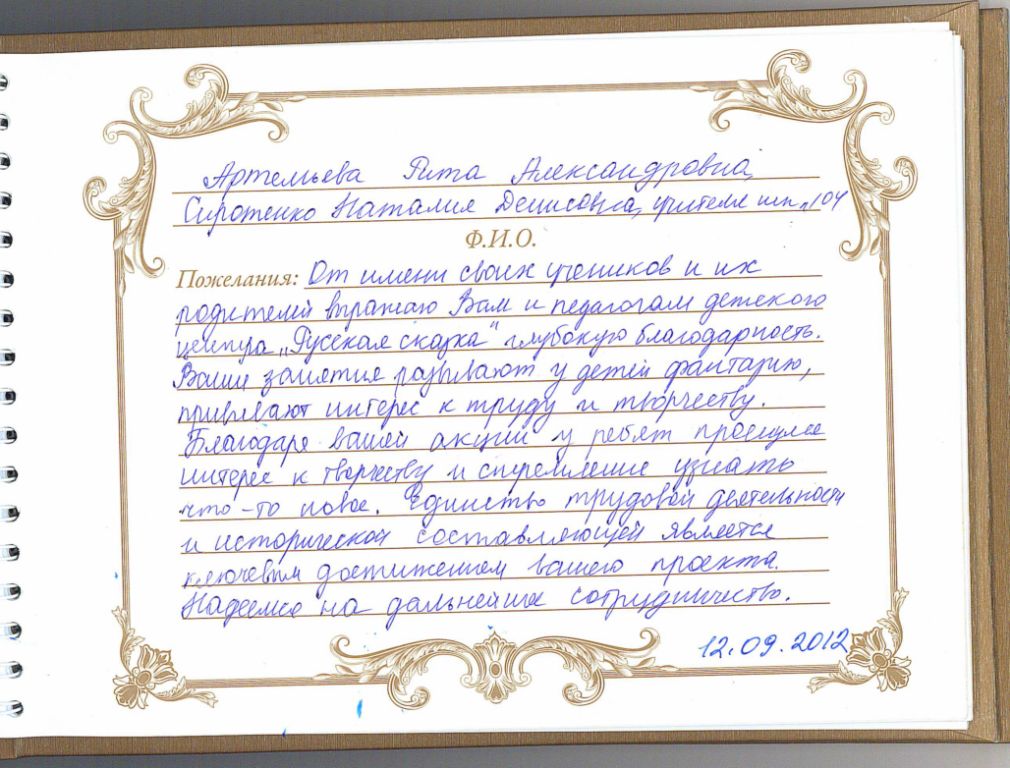 Артемьева Рита Александровна,
Сиротенко Наталия Денисовна, учителя шк. 104
Ф.И.О.
Пожелания: От имени своих учеников и их
родителей выражаю Вам и педагогам детского
центра „Русская сказка" глубокую благодарность.
Ваши занятия развивают у детей фантазию,
прививают интерес к труду и творчеству.
Благодаря вашей акции у ребят проснулся
интерес к творчеству и стремление узнать
что-то новое. Единство трудовой деятельности
и исторической составляющей является
ключевым достижением вашего проекта.
Надеемся на дальнейшее сотрудничество.
12.09.2012